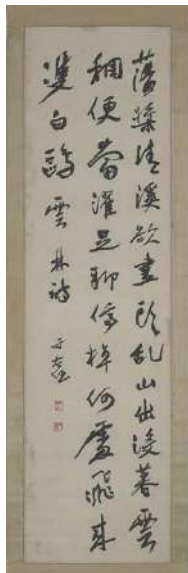 蕩槳清溪欲盡頭亂山出没暮雲
稠便當濯足聊停棹何處飛來
雙白鷗 雲林詩